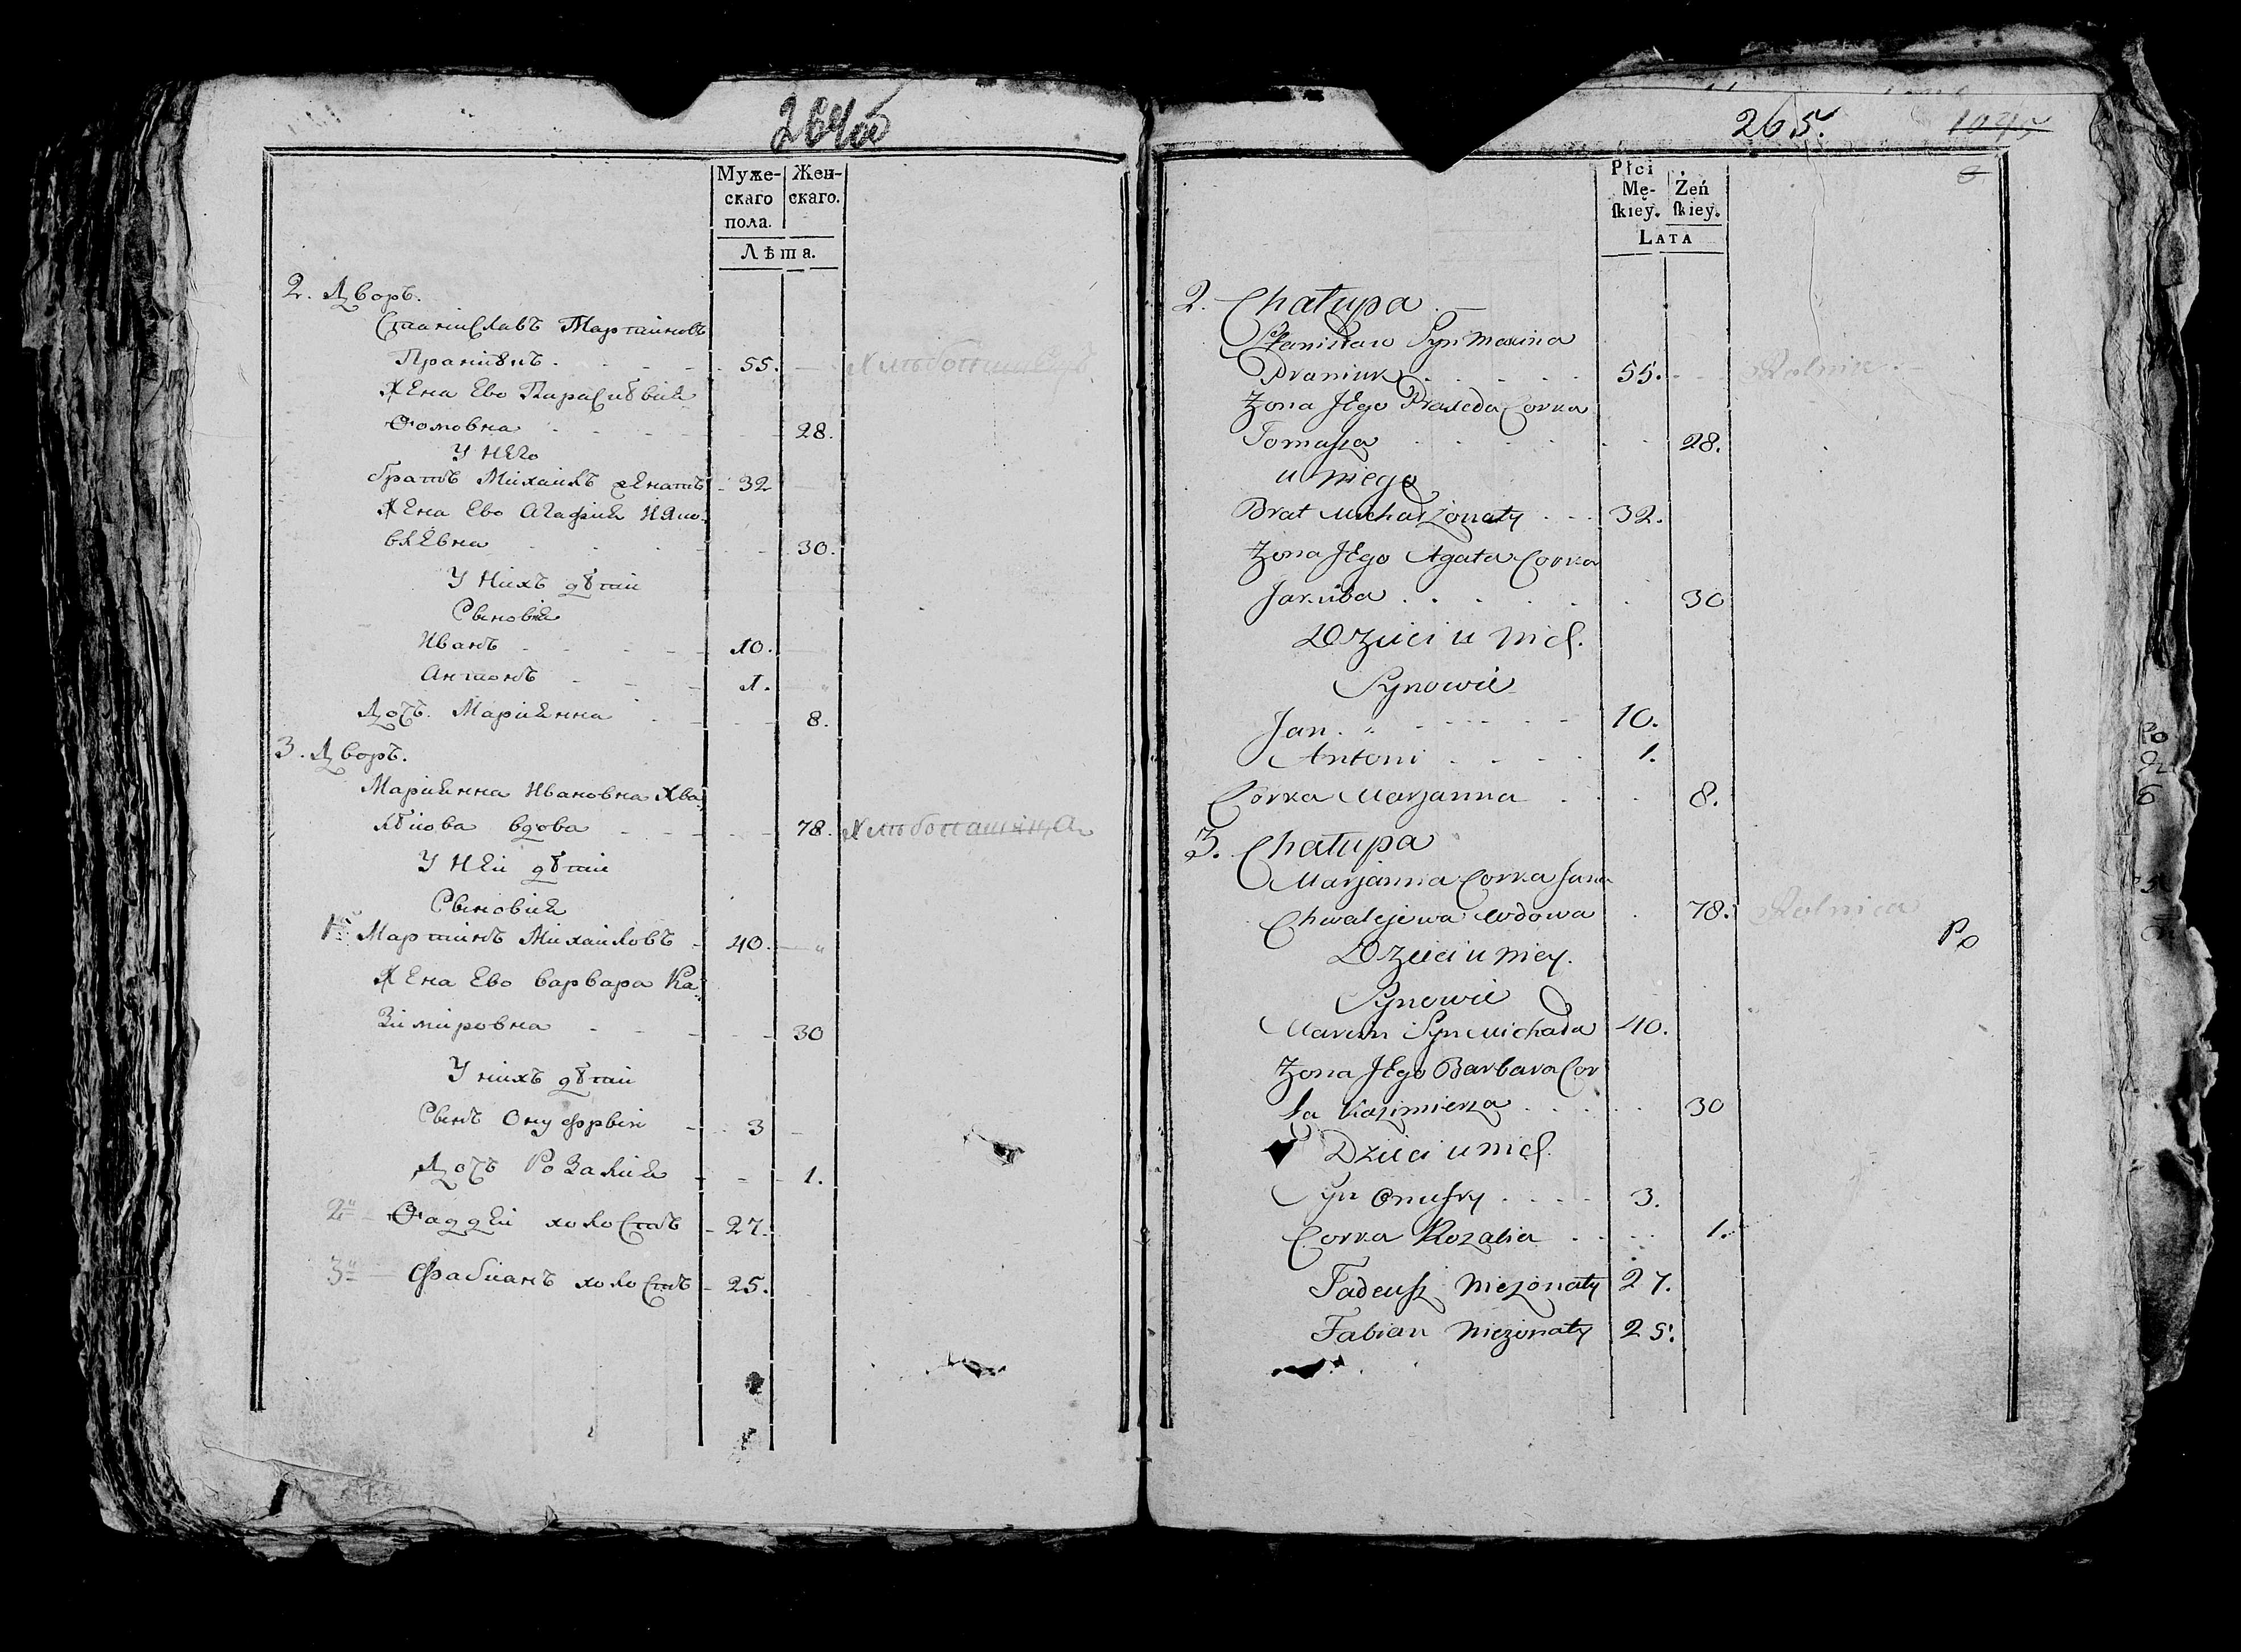 264об
Муже-
скаго
пола.
Жен-
скаго.
Лѣта.
2. Дворъ.
Станиславъ Мартиновъ
Пранюкъ. 55. Хлѣбопашецъ
Жена Ево Параскѣвия
Фомовна 28.
У Него
братъ Михаилъ женатъ 32
Жена Ево Агафия Яко-
влевна 30.
У Нихъ дѣти
Сыновия
Иванъ 10.
Антонъ 1.
Дочь Марианна 8.
3. Дворъ.
Марианна Ивановна Хва-
вдова 78. Хлѣбопашица
У Ней дѣти
Сыновия
1й Мартинъ Михаиловъ 40.
Жена Ево Варвара Ка-
зимировна 30
У нихъ дѣти
Сынъ Онуфрый 3
Дочь Розалия 1.
2й Фаддей холостъ 27.
3й Фабианъ холостъ 25.
265.
1045
Płci
Mę-
ſkiey.
Żeń
ſkiey.
LATA
2. Chałupa
Stanisław Syn Marcina
Praniuk 55. Rolnik.
Żona Jego Praxeda Corka
Tomasza 28.
u niego
Brat Michał Żonaty 32.
Żona Jego Agata Corka
Jakuba 30
Dzieci u nich.
Synowie
Jan. 10.
Antoni 1.
Corka Marjanna 8.
3. Chałupa
Marjanna Corka Jana
Chwalejewa wdowa 78. Rolnica
Dzieci u niey.
Synowie
Marcin Syn Michała 40.
Żona Jego Barbara Cor
ka Kazimierza 30
Dzieci u nich.
Syn Onufry 3.
Corka Rozalia 1.
Tadeusz nieżonaty 27.
Fabian nieżonaty 25.